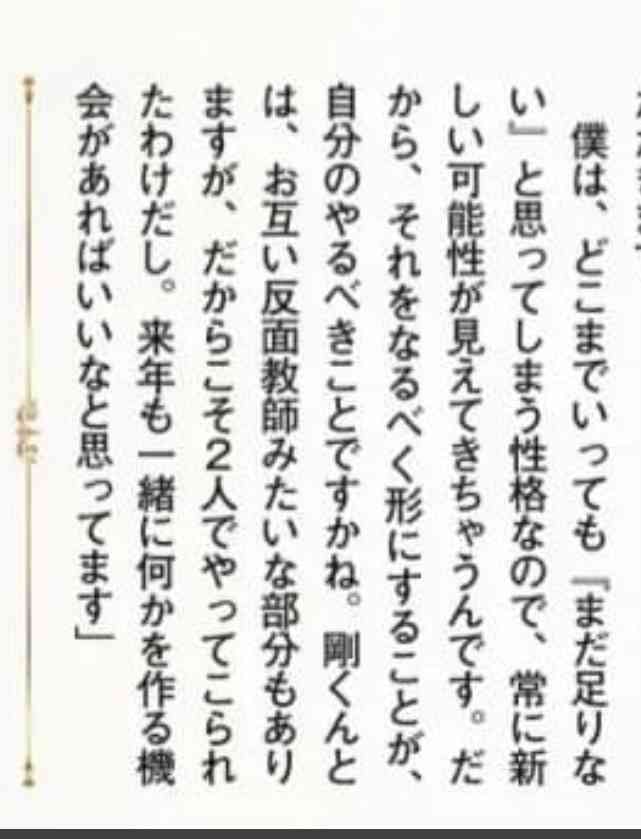 僕は、どこまでいっても『まだ足りな
い』と思ってしまう性格なので、常に新
しい可能性が見えてきちゃうんです。だ
から、それをなるべく形にすることが、
自分のやるべきことですかね。剛くんと
は、お互い反面教師みたいな部分もあり
ますが、だからこそ2人でやってこられ
たわけだし。来年も一緒に何かを作る機
会があればいいなと思ってます」